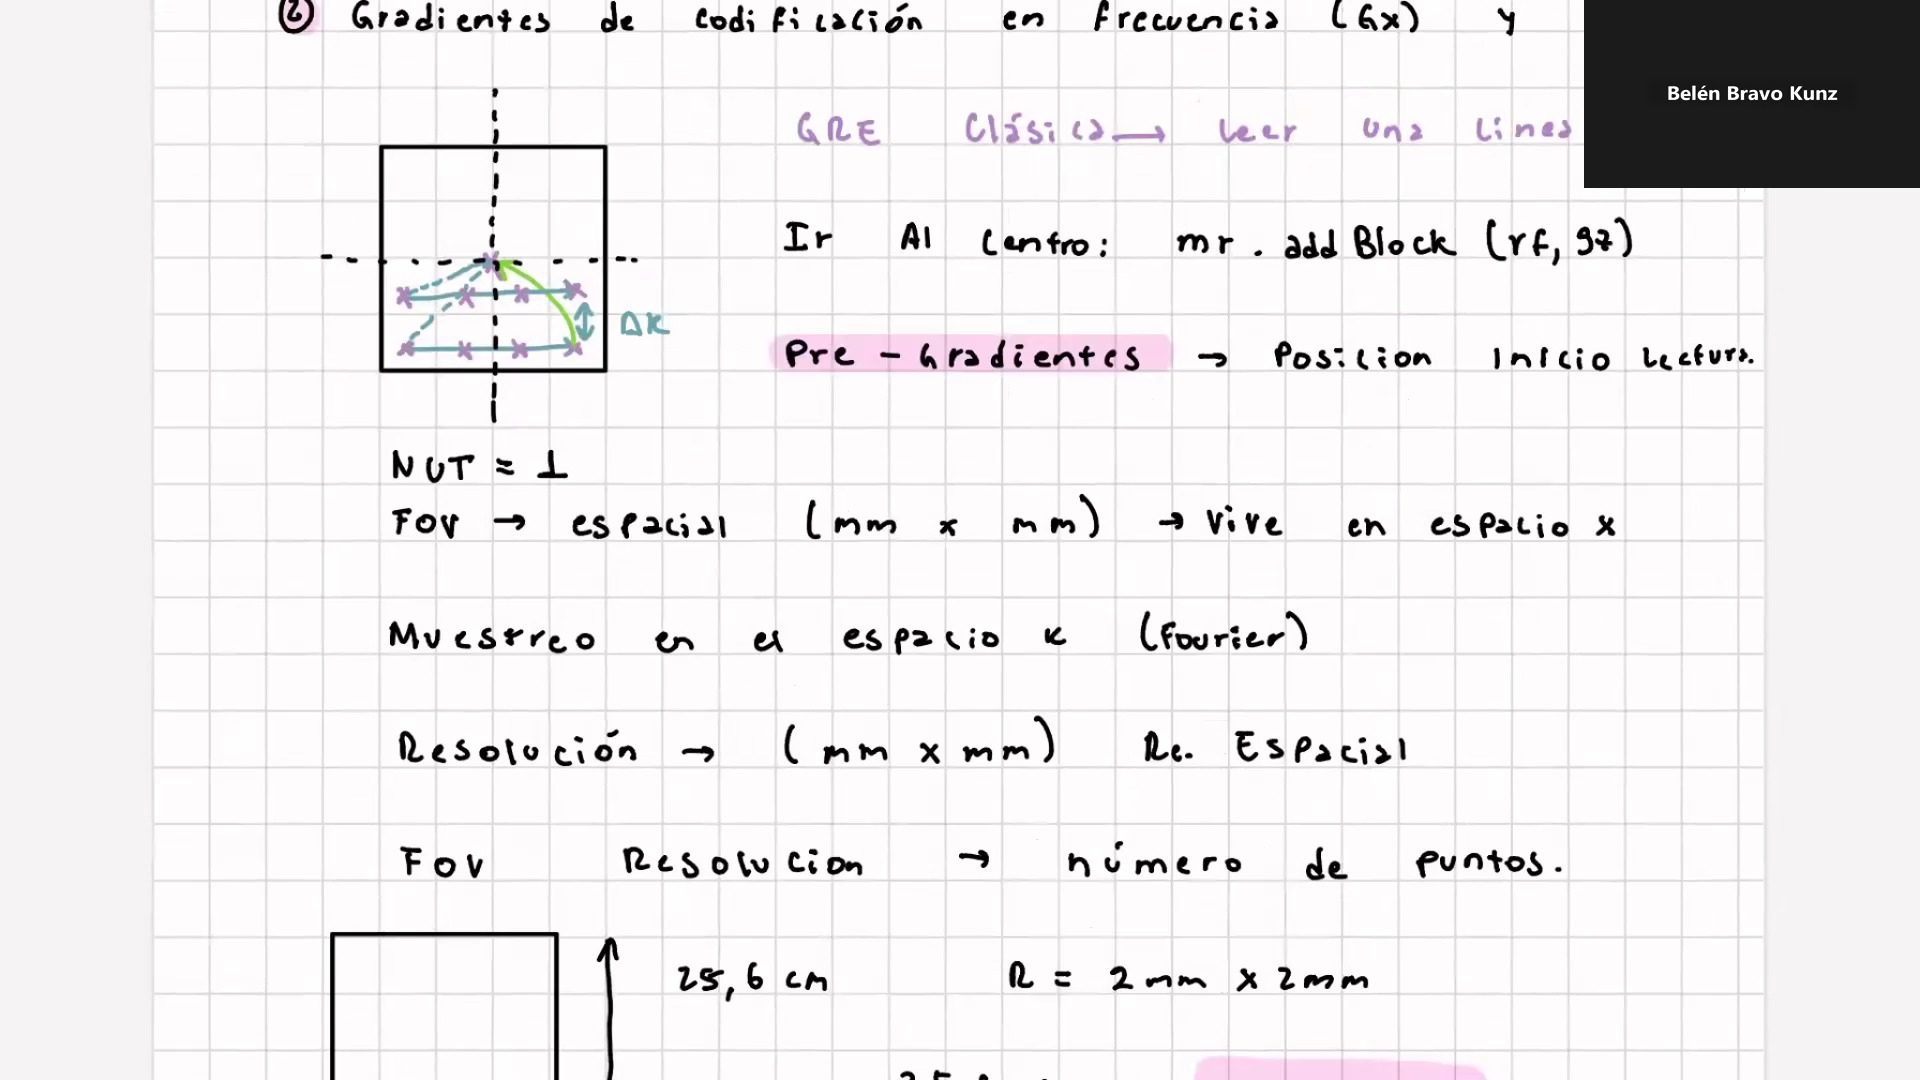 ② Gradientes de codificación en frecuencia (Gx) y
Belén Bravo Kunz
GRE Clásica → leer una linea
Ir Al centro: mr. addBlock (rf, gz)
Pre - Gradientes → Posicion Inicio Lectura.
Δk
FOV → espacial (mm x mm) → vive en espacio x
Muestreo en el espacio k (Fourier)
Resolución → (mm x mm) Re. Espacial
FOV Resolucion → número de puntos.
25,6 cm R = 2mm x 2mm